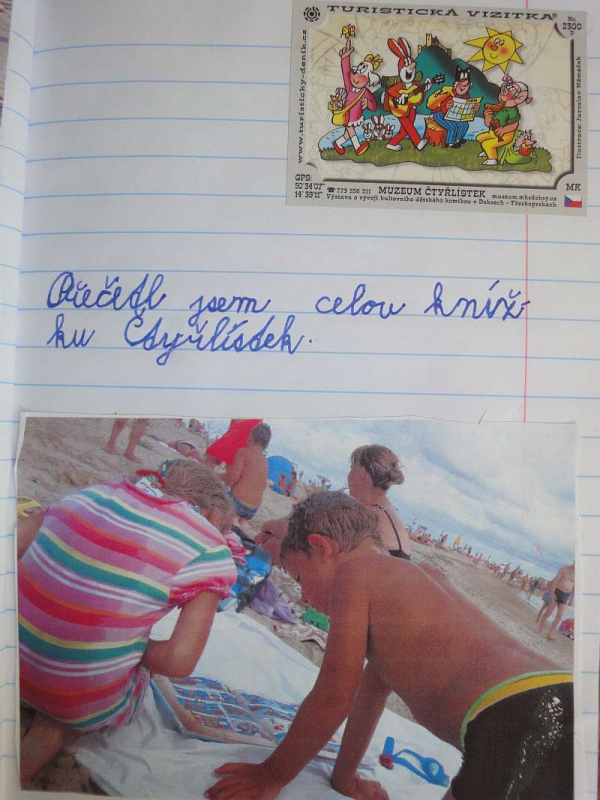 TURISTICKÁ VIZITKA®
No.
2300
www.turisticky-denik.cz
Ilustrace: Jaroslav Němeček
GPS:
50°34'07"
14°39'11"
☎ 773 550 211 MUZEUM ČTYŘLÍSTEK museum.mksdoksy.cz
Výstava o vývoji kultovního dětského komiksu v Doksech - Třeskoprskách
MK
Přečetl jsem celou kníž-
ku Čtyřlístek.